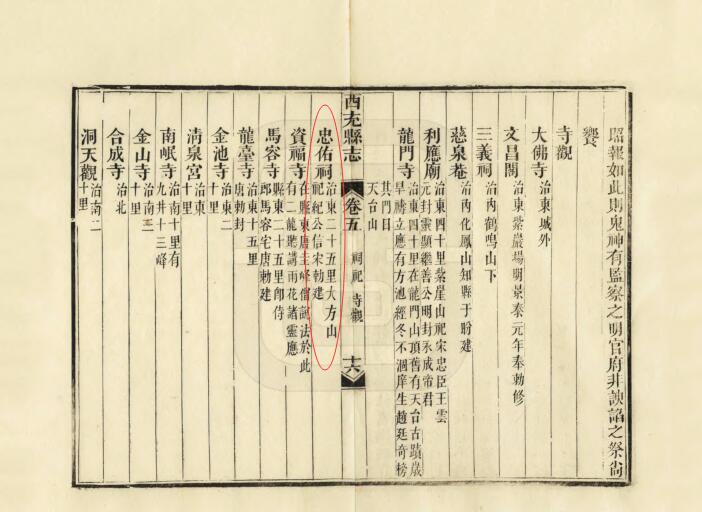 昭報如此則鬼神有監察之明官府非諛諂之祭尙
饗
寺觀
大佛寺 治東城外
文昌閣 治東紫巖場明景泰元年奉勅修
三義祠 治內鶴鳴山下
慈泉菴 治內化鳳山知縣于肹建
利應廟 治東四十里紫崖山祀宋忠臣王雲
元封靈顯繼善公明封永成帝君
龍門寺 治東四十里在龍門山頂舊有天台古蹟歲
旱禱立應有方池經冬不涸庠生趙廷奇榜
其門曰
天台山
西充縣志 卷五 祠祀 寺觀 十六
忠佑祠 治東二十五里大方山
祀紀公信宋勅建
資福寺 在縣東唐圭峰僧談法於此
有二龍聽講雨花諸靈應
馬容寺 縣東二十五里卽侍
郎馬容宅唐勅建
龍臺寺 治東十五里
唐勅封
金池寺 治東二
十里
淸泉宮 治東
十里
南岷寺 治南十里有
九井十三峰
金山寺 治南三
十里
合成寺 治北
洞天觀 治南二
十里